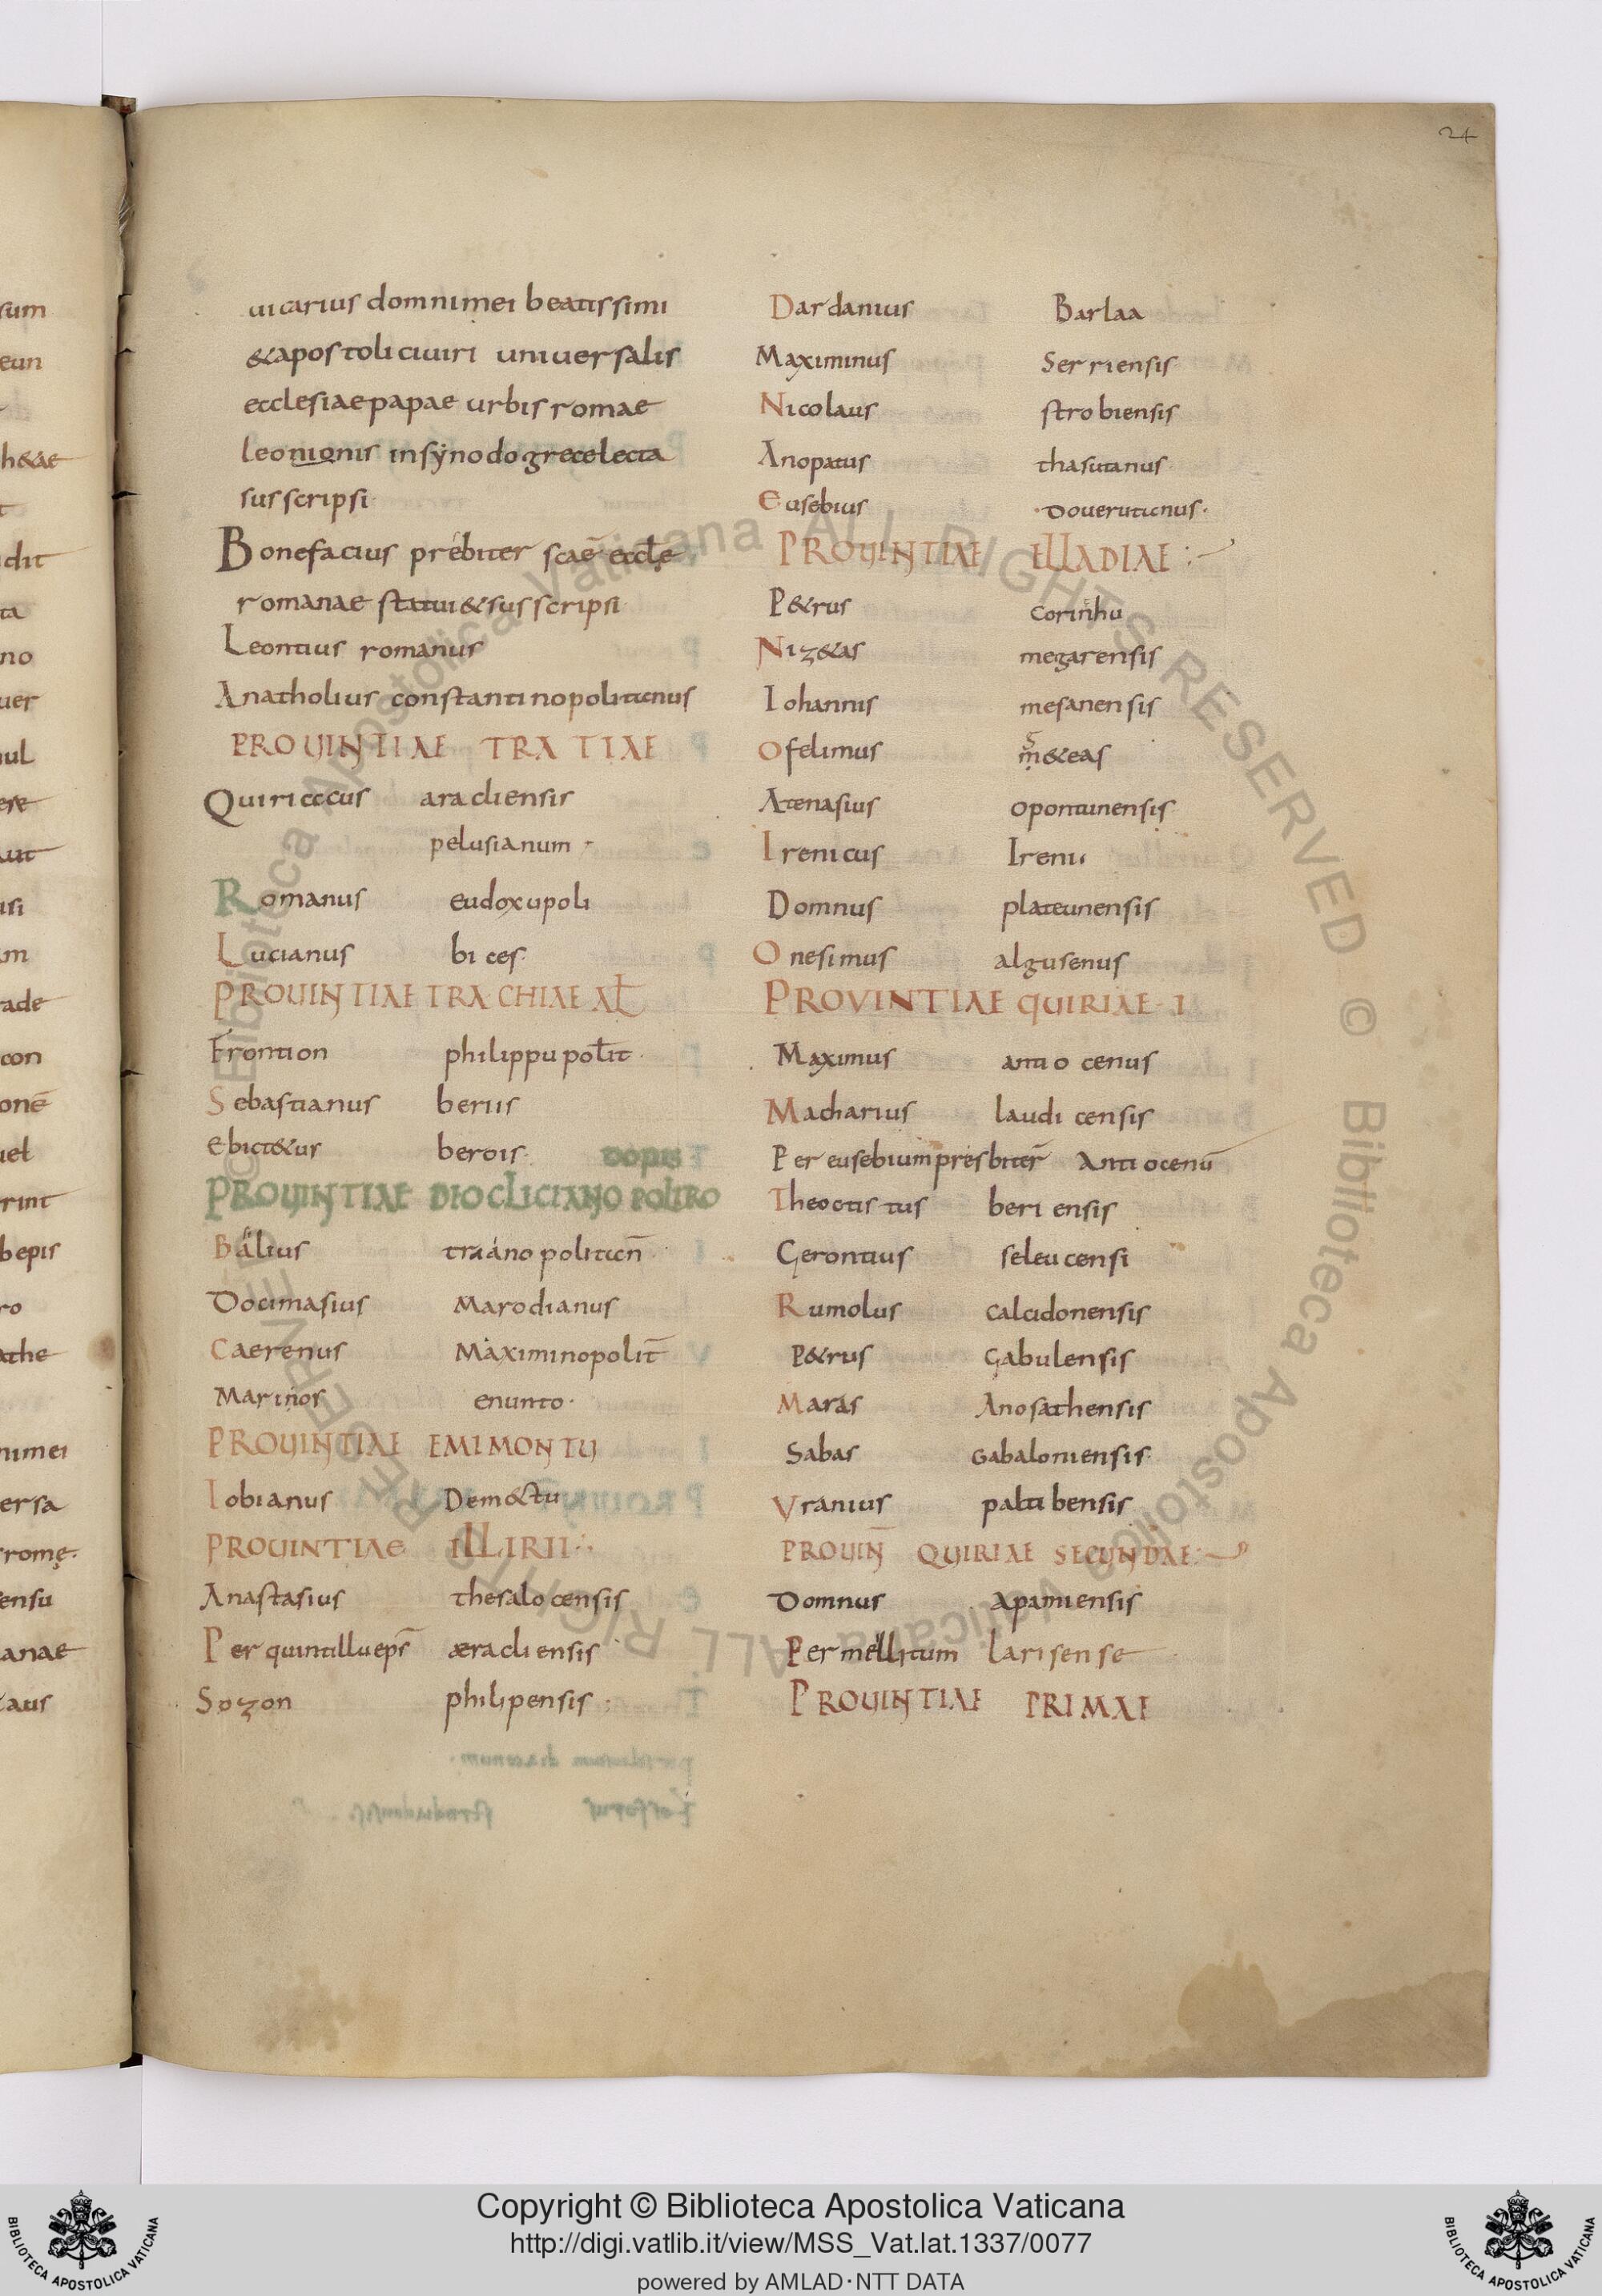 24
uicarius domni mei beatissimi
&apostolici uiri uniuersalis
ecclesiae papae urbis romae
leonionis in synodo grece lecta
suscripsi
Bonefacius prebiter scae eccle
romanae statui & suscripsi
Leontius romanus
Anatholius constantinopolitanus
PROUINTIAE TRATIAE
Quiriccus aracliensis
pelusianum
Romanus eudoxupoli
Lucianus bices
PROUINTIAE TRACHIAE AŁ
Frontion philippupolit
Sebastianus beriis
Ebict&us berois
PROUINTIAE DIOCLICIANO POLIRO
Balius traianopolitan̄
Docimasius Marodianus
Caerenus Maximinopolit̄
Marinos enunto
PROUINTIAE EMIMONTU
Iobianus Dem&tu
PROUINTIAE ILLIRII
Anastasius thesalocensis
Per quintillu eps̄ æracliensis
Sozon philipensis
Dardanius Barlaa
Maximinus Serriensis
Nicolaus strobiensis
Anopatus thasitanus
Eusebius Doueruticnus
PROUINTIAE ELLADIAE
P&rus Corinhu
Niz&as megarensis
Iohannis mesanensis
Ofelimus m&eas
Atenasius opontinensis
Irenicus Irenii
Domnus plateunensis
Onesimus algusenus
PROVINTIAE QUIRIAE I
Maximus antiocenus
Macharius laudicensis
Per eusebium presbiter̄ Antiocenū
Theoctistus beriensis
Gerontius seleucensi
Rumolus calcidonensis
P&rus Gabulensis
Maras Anosathensis
Sabas Gabaloniensis
Uranius paltibensis
PROUIN̄ QUIRIAE SECUNDAE
Domnus Apamiensis
Per mellitum larisense
PROUINTIAE PRIMAE
Copyright © Biblioteca Apostolica Vaticana
http://digi.vatlib.it/view/MSS_Vat.lat.1337/0077
powered by AMLAD·NTT DATA